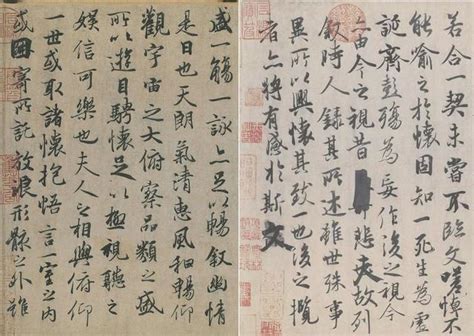 盛一觴一詠亦足以暢敘幽情
是日也天朗氣清惠風和暢仰
觀宇宙之大俯察品類之盛
所以遊目騁懷足以極視聽之
娛信可樂也夫人之相與俯仰
一世或取諸懷抱悟言一室之內
或因寄所託放浪形骸之外雖
若合一契未嘗不臨文嗟悼不
能喻之於懷固知一死生為虛
誕齊彭殤為妄作後之視今
亦由今之視昔悲夫故列
敘時人錄其所述雖世殊事
異所以興懷其致一也後之攬
者亦將有感於斯文